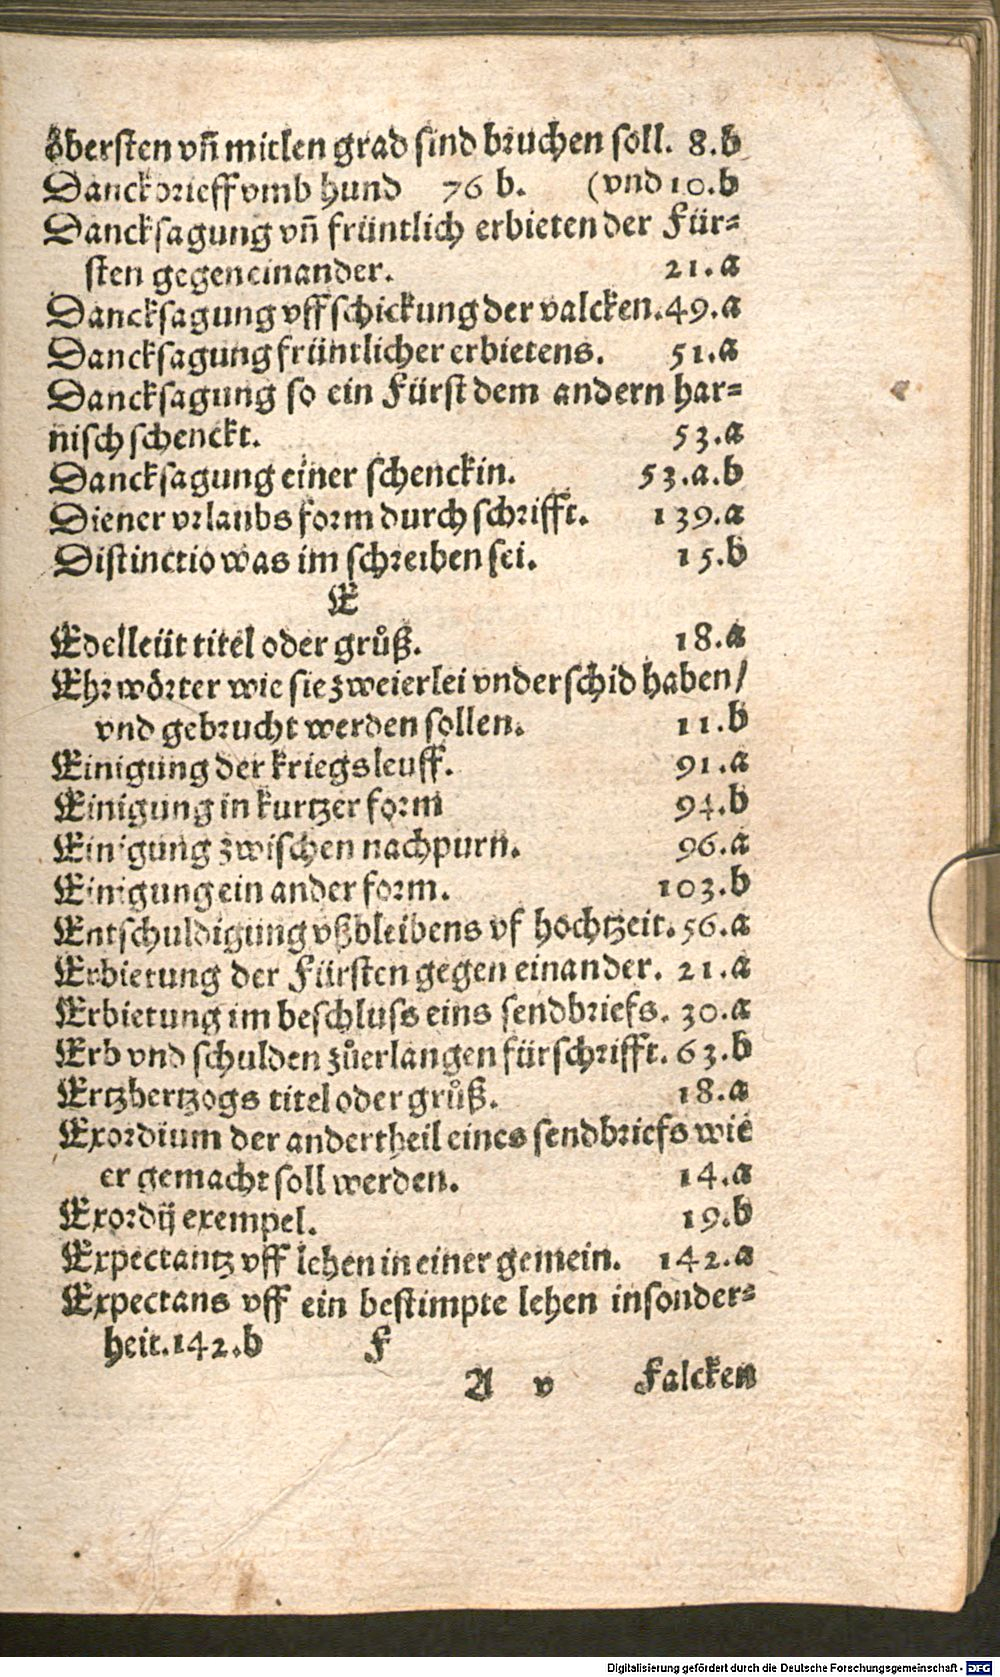 öbersten vñ mitlen grad sind bruchen soll. 8.b
Danckbrieff vmb hund 76 b. (vnd 10.b
Dancksagung vñ früntlich erbieten der Für=
sten gegen einander. 21.a
Dancksagung vff schickung der valcken. 49.a
Dancksagung früntlicher erbietens. 51.a
Dancksagung so ein Fürst dem andern har=
nisch schenckt. 53.a
Dancksagung einer schenckin. 53.a.b
Diener vrlaubs form durch schrifft. 139.a
Distinctio was im schreiben sei. 15.b
E
Edelleüt titel oder grůß. 18.a
Ehrwörter wie sie zweierlei vnderschid haben/
vnd gebrucht werden sollen. 11.b
Einigung der kriegsleuff. 91.a
Einigung in kurtzer form 94.b
Einigung zwischen nachpurn. 96.a
Einigung ein ander form. 103.b
Entschuldigung vßbleibens vf hochtzeit. 56.a
Erbietung der Fürsten gegen einander. 21.a
Erbietung im beschluss eins sendbriefs. 30.a
Erb vnd schulden zůerlangen fürschrifft. 63.b
Ertzhertzogs titel oder grůß. 18.a
Exordium der andertheil eines sendbriefs wie
er gemacht soll werden. 14.a
Exordij exempel. 19.b
Expectantz vff lehen in einer gemein. 142.a
Expectans vff ein bestimpte lehen insonder=
heit. 142.b F
A v Falcken
Digitalisierung gefördert durch die Deutsche Forschungsgemeinschaft - DFG